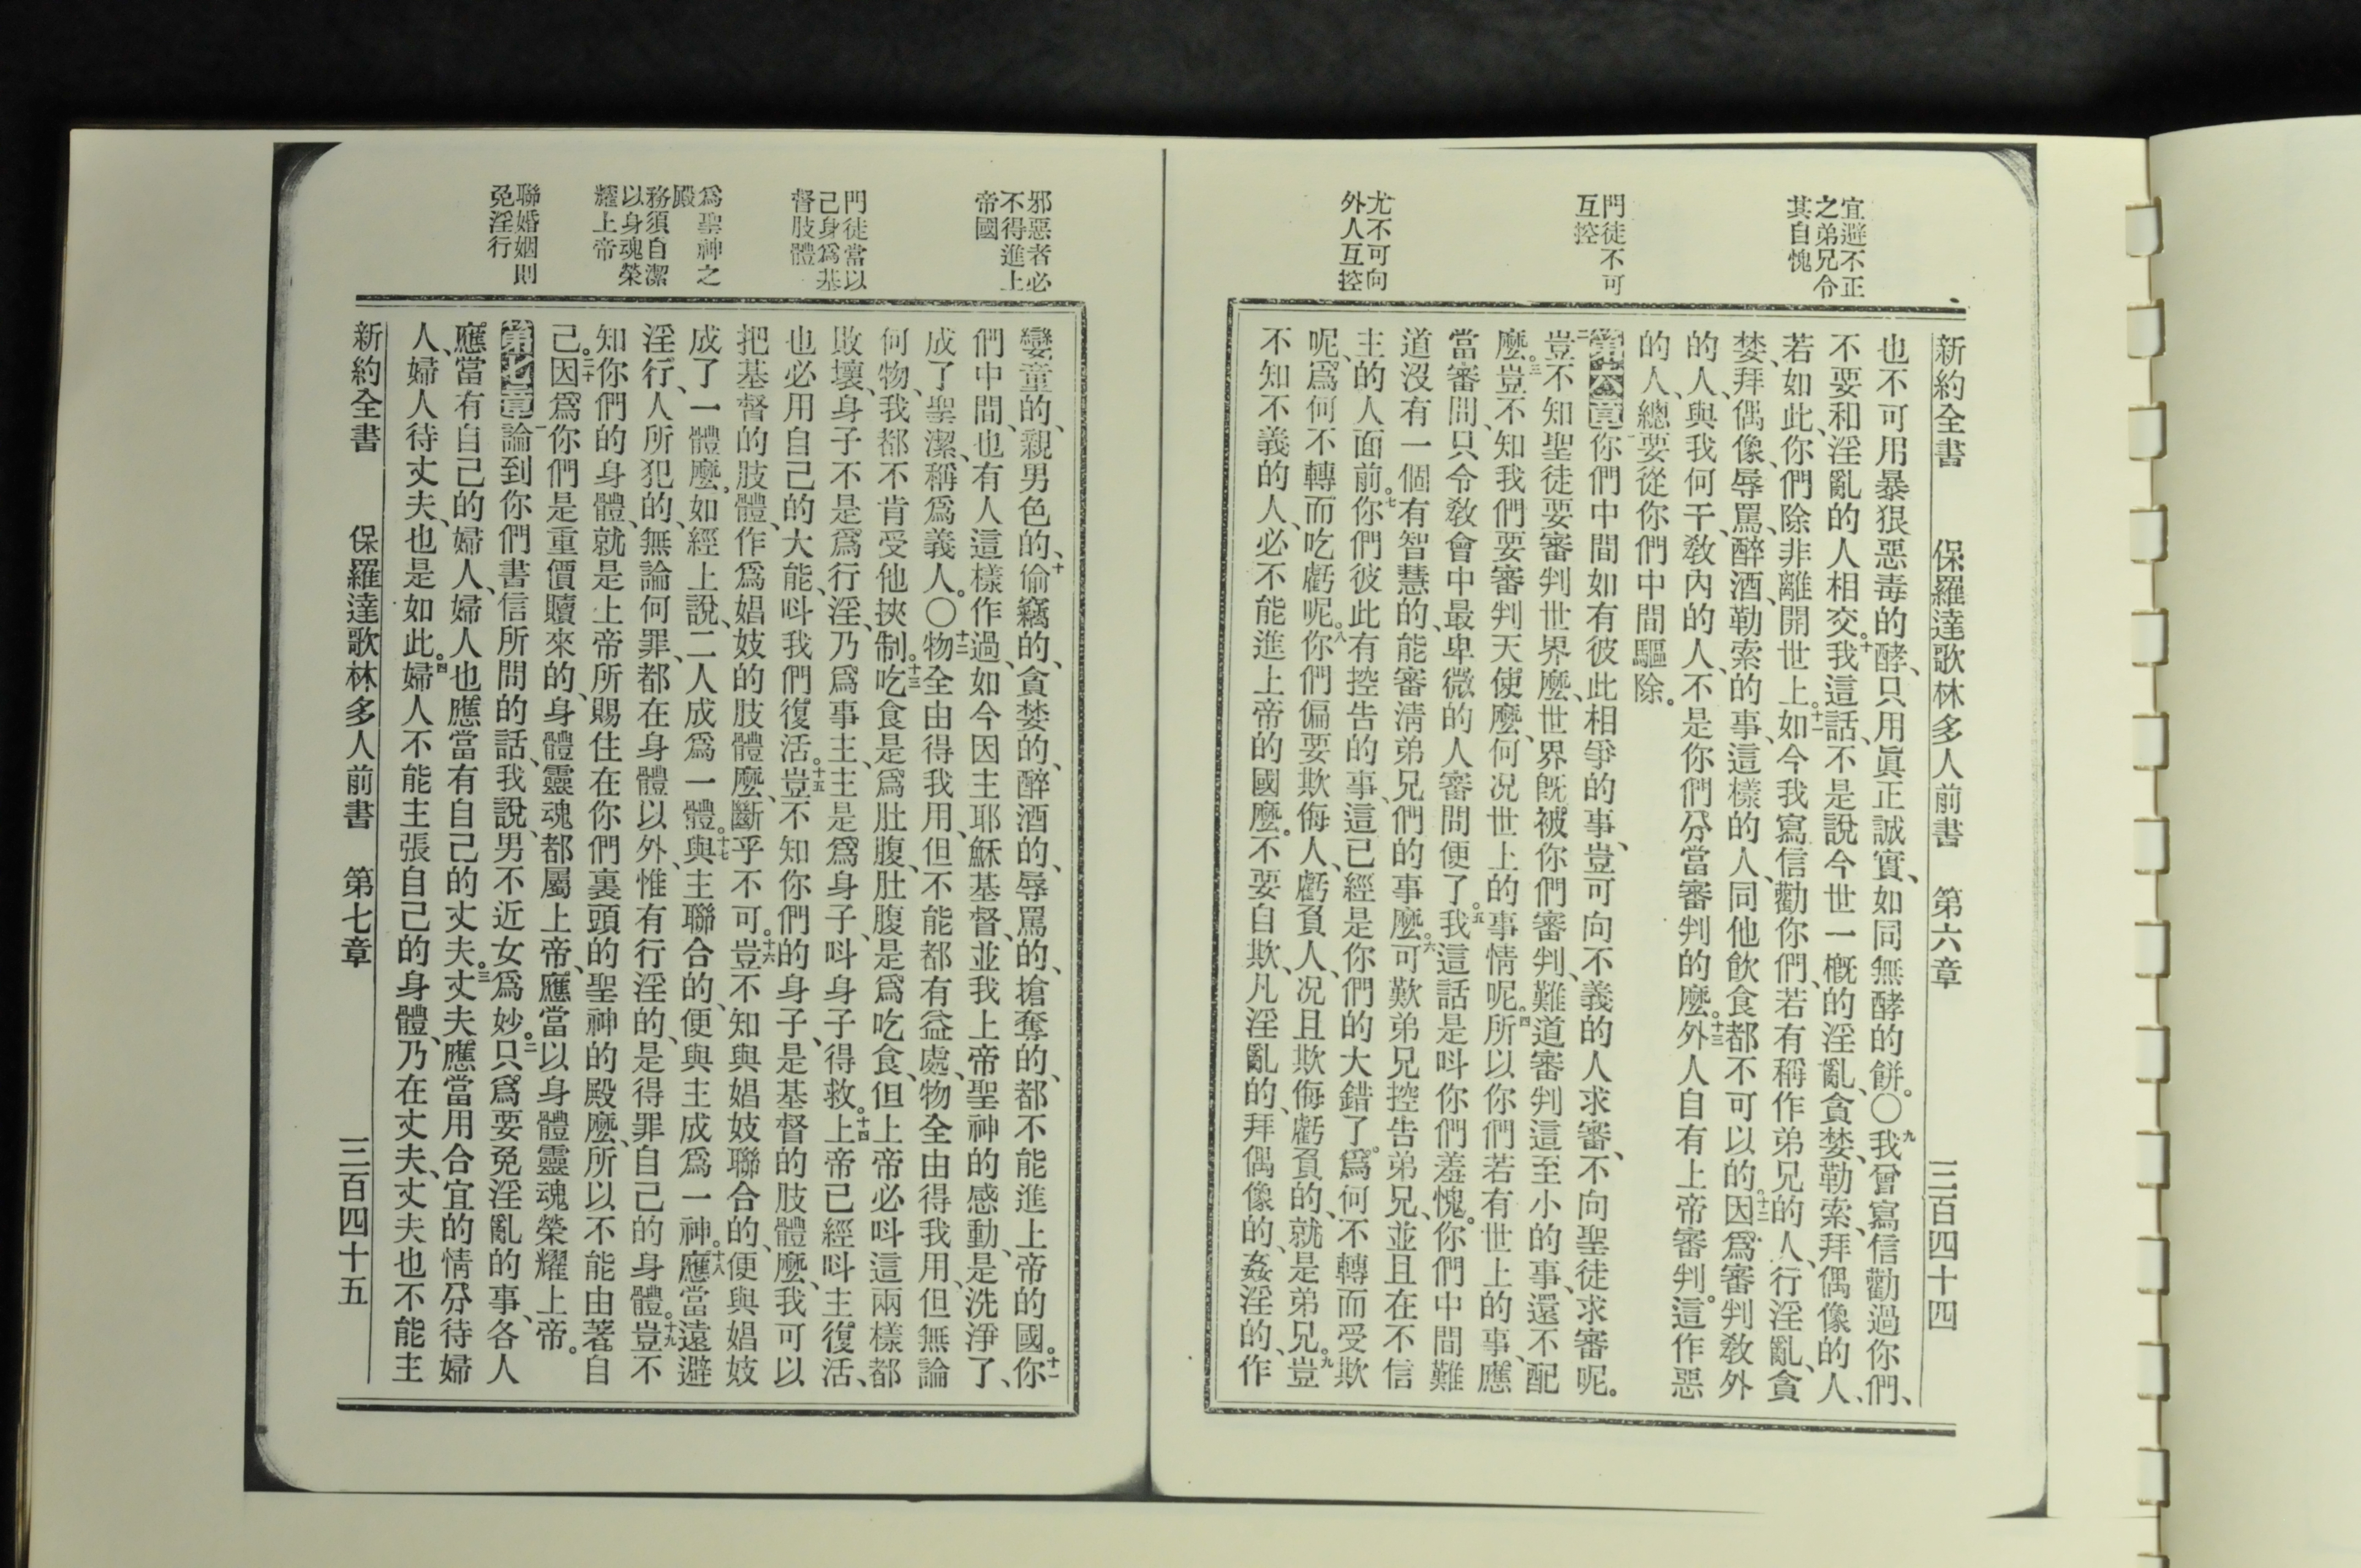 新約全書 保羅達歌林多人前書 第六章 三百四十四
宜避不正
之弟兄令
其自愧
門徒不可
互控
尤不可向
外人互控
也不可用暴狠惡毒的酵、只用眞正誠實、如同無酵的餅。〇九我曾寫信勸過你們、
不要和淫亂的人相交。十我這話、不是說今世一概的淫亂、貪婪、勒索、拜偶像的人、
若如此、你們除非離開世上。十一如今我寫信勸你們、若有稱作弟兄的人、行淫亂、貪
婪、拜偶像、辱罵、醉酒、勒索的事、這樣的人、同他飲食都不可以的。十二因爲審判教外
的人、與我何干、教內的人、不是你們分當審判的麼。十三外人自有上帝審判。這作惡
的人、總要從你們中間驅除。
第六章一你們中間如有彼此相爭的事、豈可向不義的人求審、不向聖徒求審呢。
二豈不知聖徒要審判世界麼、世界旣被你們審判、難道審判這至小的事、還不配
麼。三豈不知我們要審判天使麼、何况世上的事情呢。四所以你們若有世上的事、應
當審問、只令教會中最卑微的人審問便了。五我這話是呌你們羞愧。你們中間難
道沒有一個有智慧的、能審淸弟兄們的事麼。六可歎弟兄控告弟兄、並且在不信
主的人面前。七你們彼此有控告的事、這已經是你們的大錯了。爲何不轉而受欺
呢、爲何不轉而吃虧呢。八你們偏要欺侮人、虧負人、况且欺侮虧負的、就是弟兄。九豈
不知不義的人、必不能進上帝的國麼。不要自欺、凡淫亂的、拜偶像的、姦淫的、作
邪惡者必
不得進上
帝國
門徒當以
己身爲基
督肢體
爲聖神之
殿
務須自潔
以身魂榮
耀上帝
聯婚姻則
免淫行
孌童的、親男色的、十偷竊的、貪婪的、醉酒的、辱罵的、搶奪的、都不能進上帝的國。十一你
們中間、也有人這樣作過、如今因主耶穌基督、並我上帝聖神的感動、是洗淨了、
成了聖潔、稱爲義人。〇十二物全由得我用、但不能都有益處、物全由得我用、但無論
何物、我都不肯受他挾制。十三吃食是爲肚腹、肚腹是爲吃食、但上帝必呌這兩樣都
敗壞、身子不是爲行淫、乃爲事主、主是爲身子、呌身子得救。十四上帝已經呌主復活、
也必用自己的大能、呌我們復活。十五豈不知你們的身子、是基督的肢體麼、我可以
把基督的肢體、作爲娼妓的肢體麼、斷乎不可。十六豈不知與娼妓聯合的、便與娼妓
成了一體麼、如經上說、二人成爲一體。十七與主聯合的、便與主成爲一神。十八應當遠避
淫行、人所犯的、無論何罪、都在身體以外、惟有行淫的、是得罪自己的身體。十九豈不
知你們的身體、就是上帝所賜住在你們裏頭的聖神的殿麼、所以不能由著自
己。二十因爲你們是重價贖來的、身體靈魂都屬上帝、應當以身體靈魂榮耀上帝。
第七章一論到你們書信所問的話、我說、男不近女爲妙。二只爲要免淫亂的事、各人
應當有自己的婦人、婦人也應當有自己的丈夫。三丈夫應當用合宜的情分待婦
人、婦人待丈夫、也是如此。四婦人不能主張自己的身體、乃在丈夫、丈夫也不能主
新約全書 保羅達歌林多人前書 第七章 三百四十五